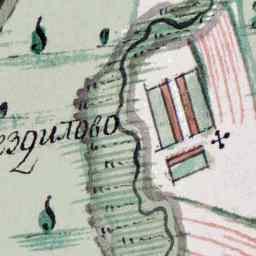 ездилово